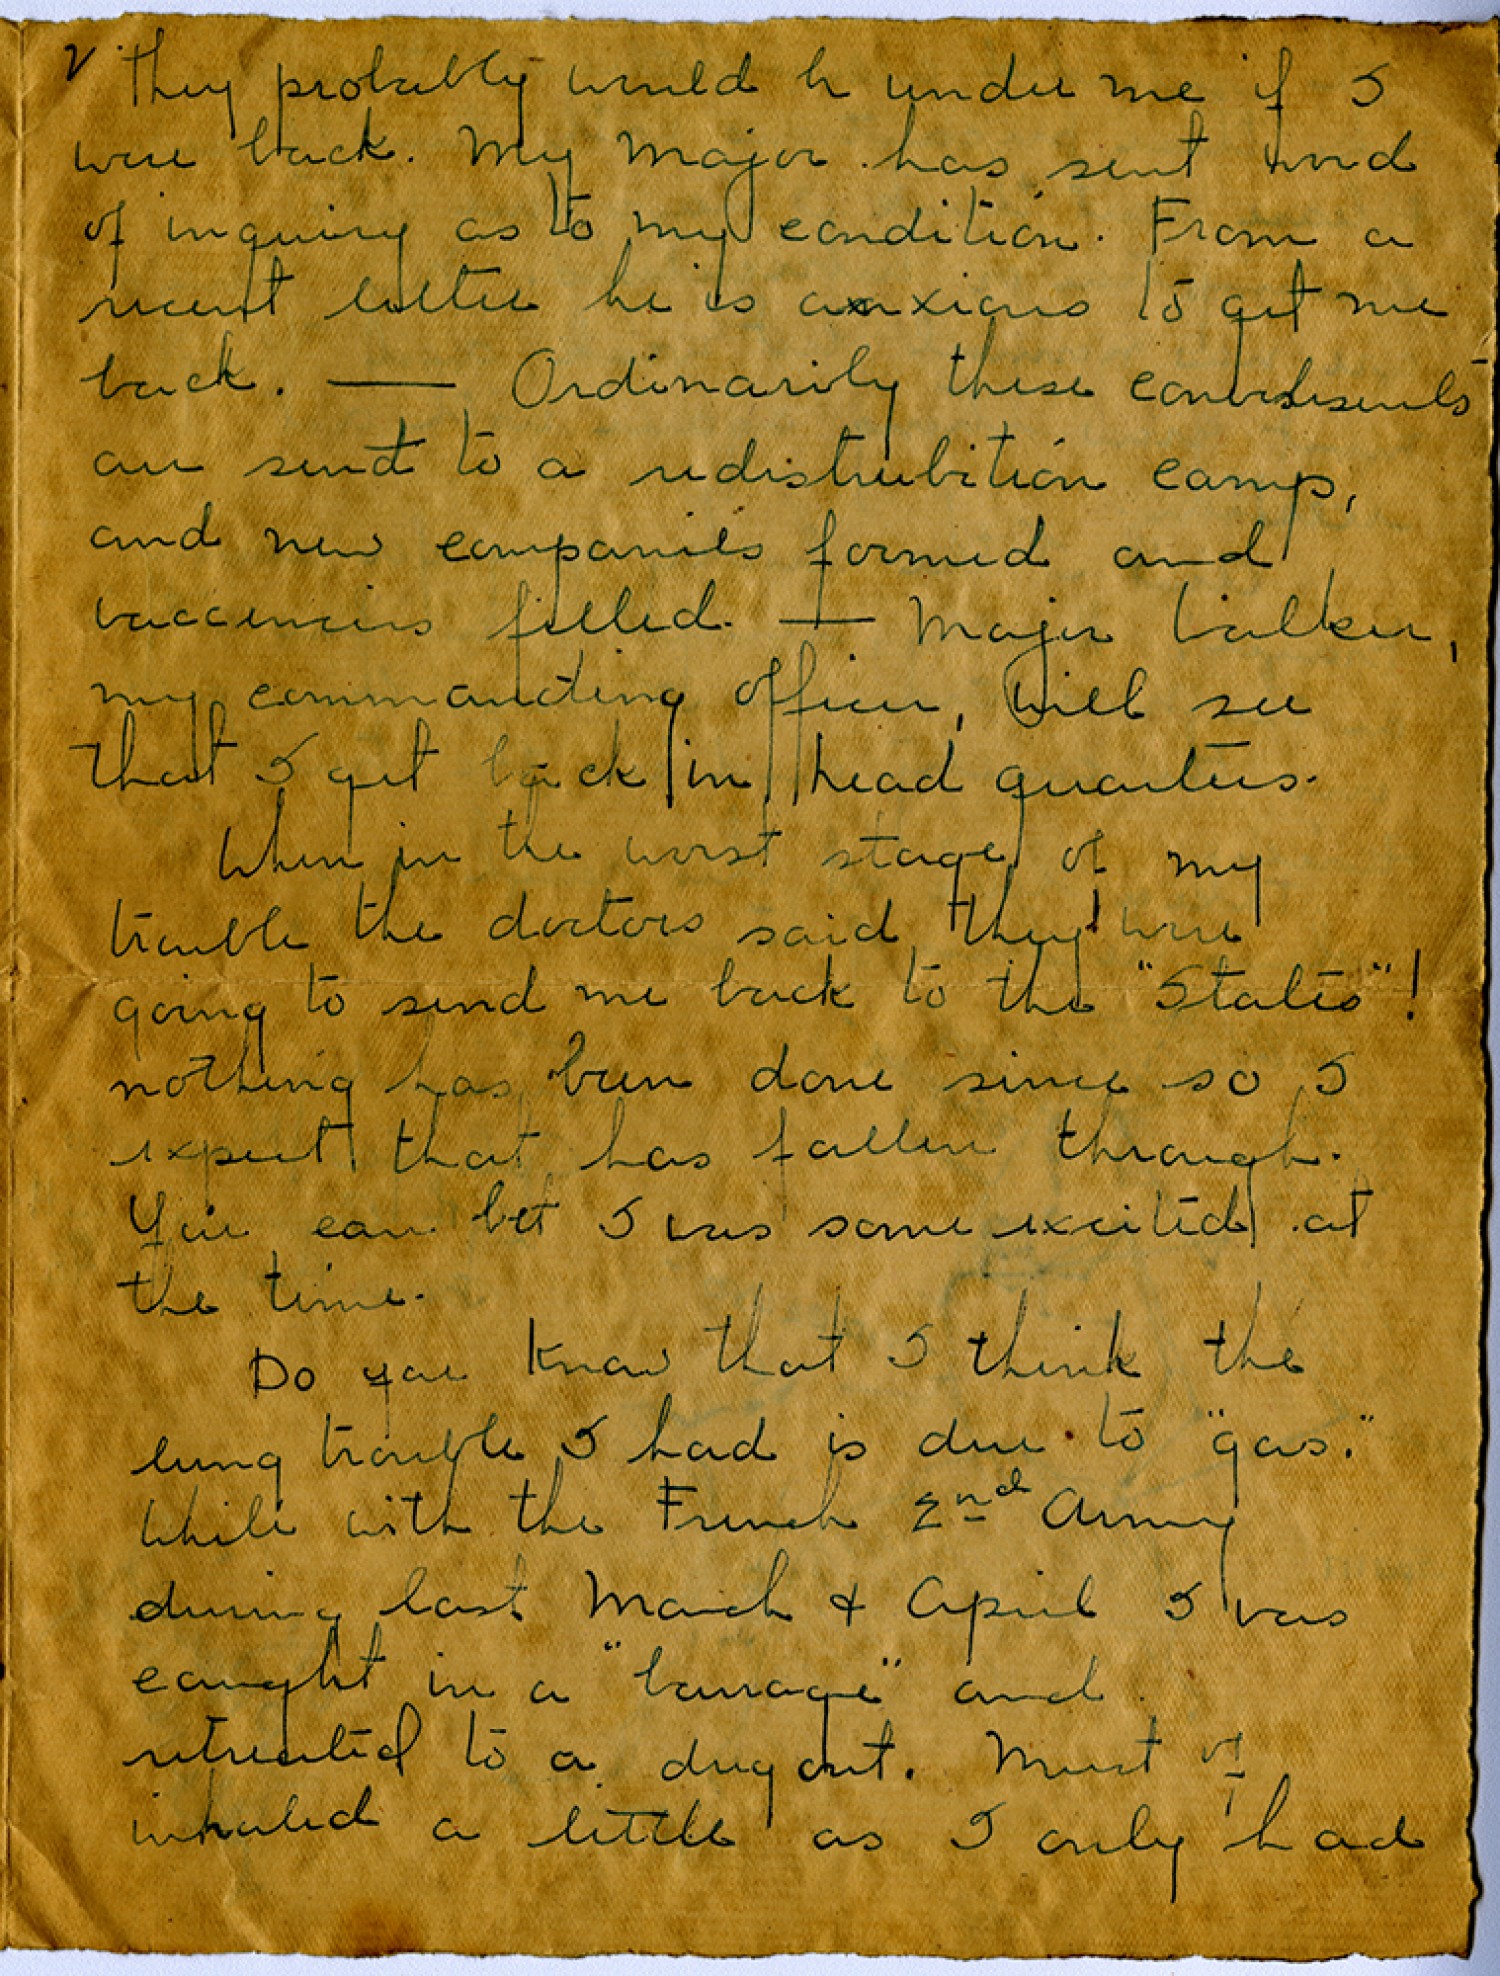 2 They probably would be under me if I
were back. My Major has sent word
of inquiry as to my condition. From a
recent letter he is anxious to get me
back. — Ordinarily these
are sent to a redistribution camp,
and new companies formed and
filled. — Major
my commanding officer, will see
that I get back in head quarters.
When in the worst stage of my
trouble the doctors said they were
going to send me back to the "States"!
nothing has been done since so I
expect that has fallen through.
You can bet I was some excited at
the time.
Do you know that I think the
lung trouble I had is due to "gas."
While with the French 2nd Army
during last March & April I was
caught in a "barrage" and
retreated to a dug out. Must of
inhaled a little as I only had